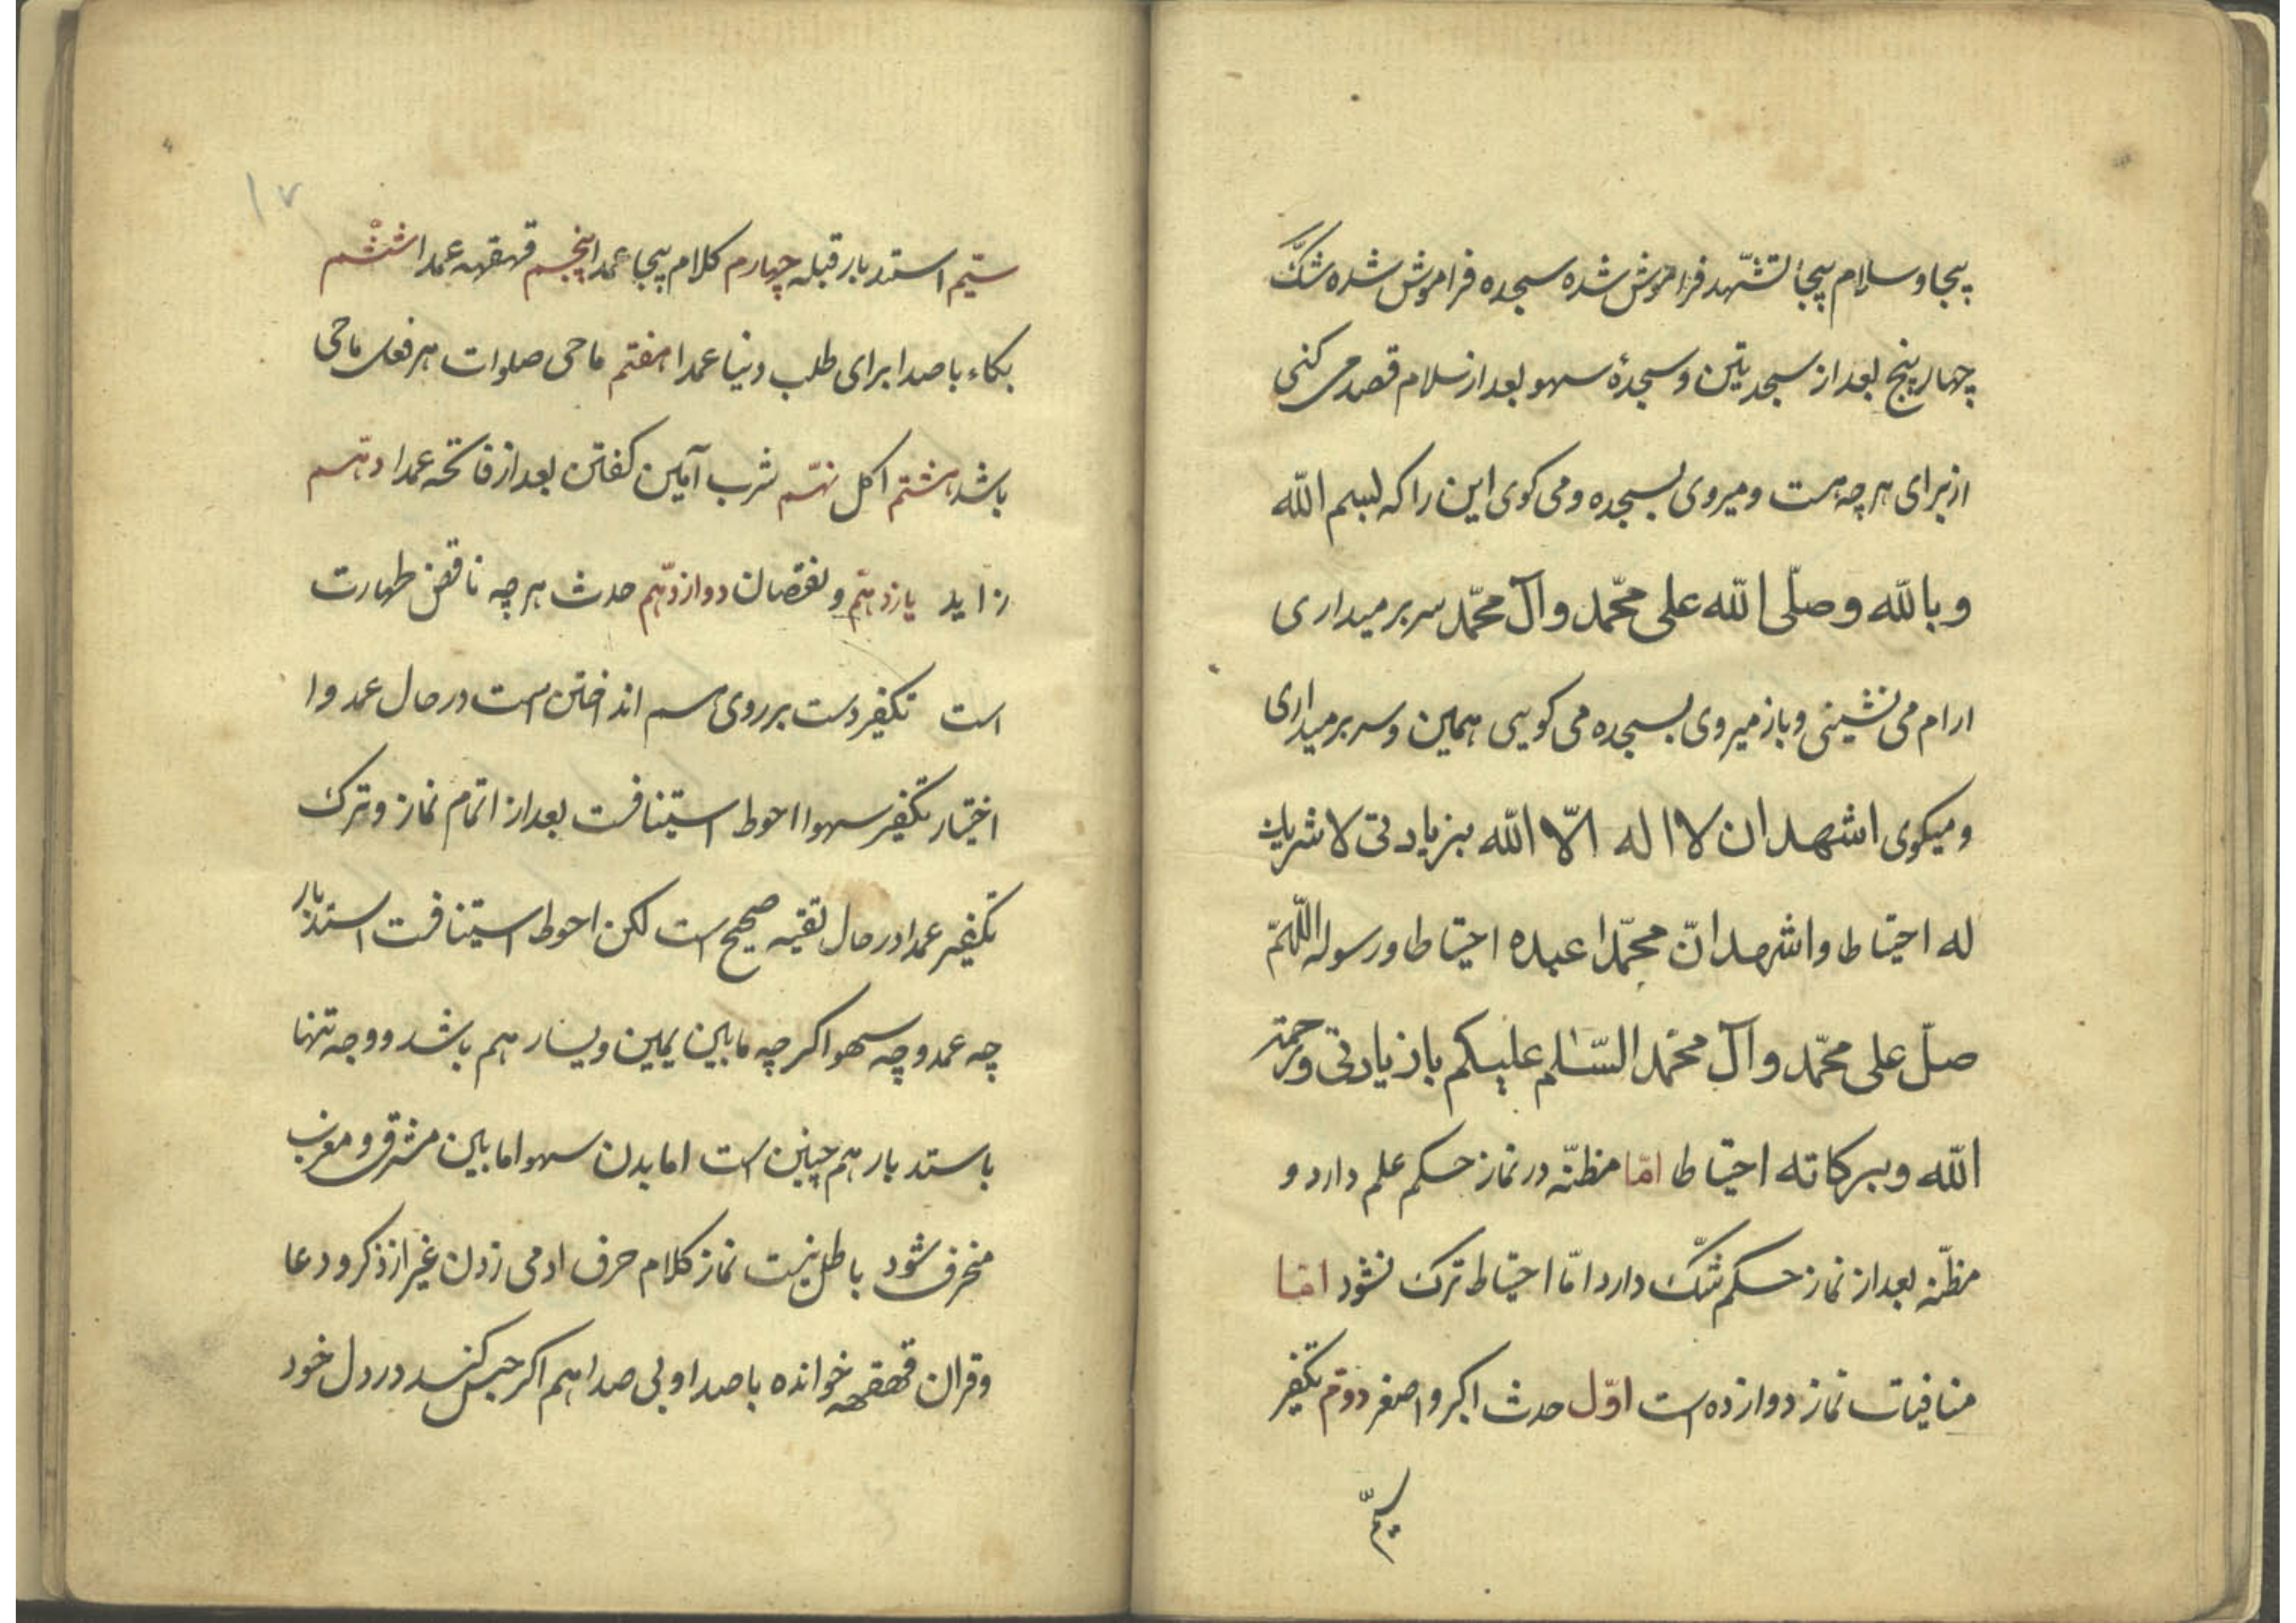 بیجا و سلام بیجا تشهّد فراموش شده سجده فراموش شده شکّ
چهار پنج بعد از سجدیتین و سجدهٔ سهو بعد از سلام قصد می کنی
از برای هر چه هست و میروی بسجده و می کوی این را که بسم الله
و بالله و صلّی الله علی محمّد و آل محمّد سر بر میداری
ارام می نشینی و باز میروی بسجده می کویی همین و سر بر میداری
و میکوی اشهد ان لا اله الّا الله بزیادتی لا شریك
له احتیاط و اشهد انّ محمّدا عبده احتیاطا و رسوله اللّهمّ
صلّ علی محمّد و آل محمّد السّلم علیکم باز یادتی و رحمة
الله و برکاته احتیاطا امّا مظنّه در نماز حکم علم دارد و
مظنّه بعد از نماز حکم شکّ دارد امّا احتیاط ترک نشود امّا
منافیات نماز دوازده است اوّل حدث اکبر و اصغر دوّم تکفیر
سیّم
۱۷
سیّم استدبار قبله چهارم کلام بیجا عمدا پنجم قهقهه عمدا ششم
بکاء با صدا برای طلب دنیا عمدا هفتم ماحی صلوات هر فعل ماحی
باشد هشتم اکل نهّم شرب آمین کفتن بعد از فاتحه عمدا دهّم
زاید یازدهّم و نقصان دوازدهّم حدث هر چه ناقض طهارت
است تکفیر دست بر روی هم انداختن است در حال عمد و ا
اختیار تکفیر سهوا احوط استینافست بعد از اتمام نماز و ترک
تکفیر عمدا در حال تقیه صحیح است لکن احوط استینافست استدبار
چه عمد و چه سهوا اکر چه مابین یمین و یسار هم باشد و وجه تنها
باستدبار هم چنین است اما بدن سهوا مابین مشرق و مغرب
منحرف شود باطل نیست نماز کلام حرف ادمی زدن غیر از ذکر و دعا
و قران قهقهه خوانده با صدا و بی صدا هم اکر حبس کند در دل خود